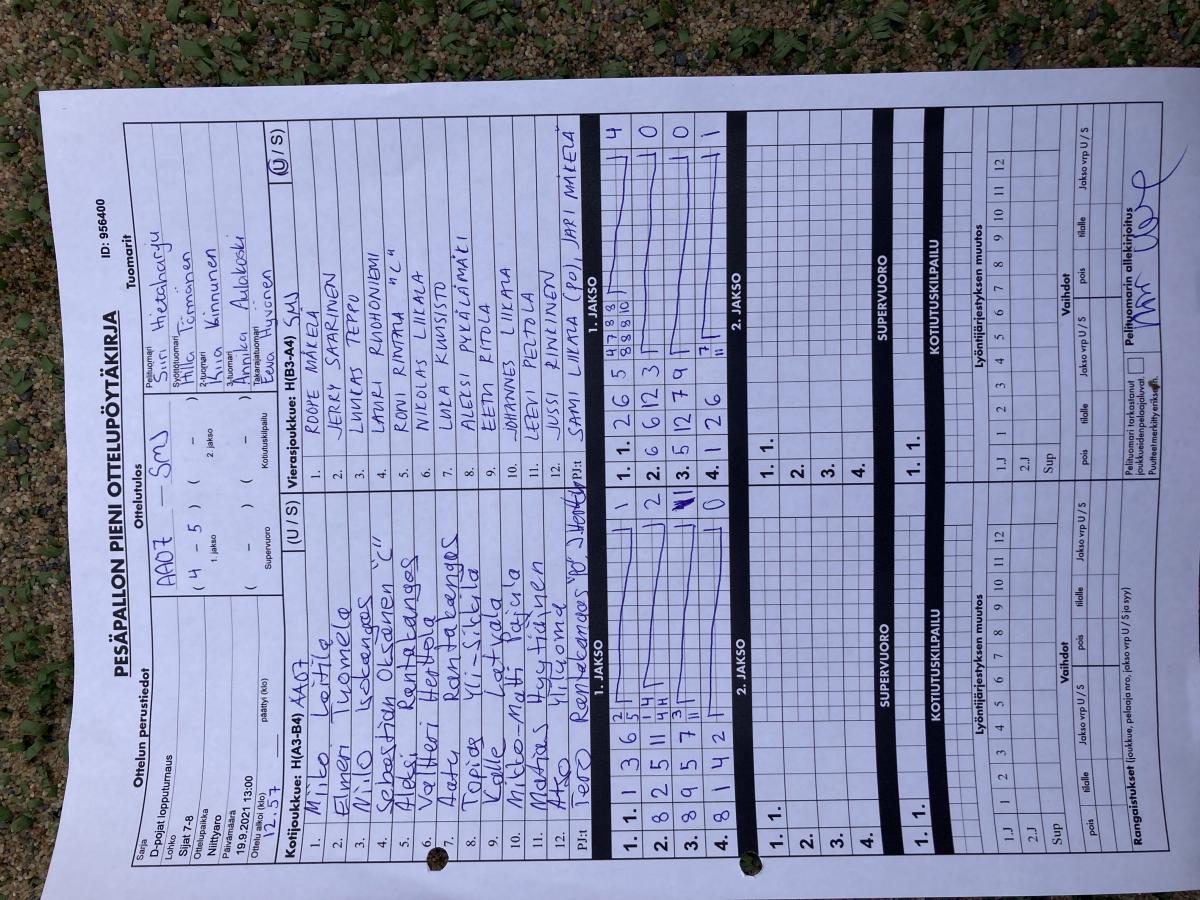 PESÄPALLON PIENI OTTELUPÖYTÄKIRJA
ID: 956400
Ottelun perustiedot
Sarja
D-pojat lopputurnaus
Lohko
Sijat 7-8
Ottelupaikka
Niittyaro
Päivämäärä
19.9.2021 13:00
Ottelu alkoi (klo) päättyi (klo)
12.57
Ottelutulos
AA07 - SMJ
( 4 - 5 ) ( - )
1. jakso 2. jakso
( - ) ( - )
Supervuoro Kotiutuskilpailu
Tuomarit
Pelituomari
Siiri Hietaharju
Syöttötuomari
Hilla Törmänen
2-tuomari
Kiia Kinnunen
3-tuomari
Annika Aulakoski
Takarajatuomari
Eeva Hyvönen
Kotijoukkue: H(A3-B4) AA07 (U / S)
1. Miiko Laitila
2. Elmeri Tuomela
3. Niilo Isokangas
4. Sebastian Oksanen "C"
5. Aleksi Rantakangas
6. Valtteri Henttola
7. Aatu Rantakangas
8. Topias Yli-Sikkilä
9. Kalle Latvala
10. Mikko-Matti Pajula
11. Matias Hyytiäinen
12. Atso Yliuoma
PJ:t Tero Rantakangas "PO"
Vierasjoukkue: H(B3-A4) SMJ (U / S)
1. ROOPE MÄKELÄ
2. JERRY SAARINEN
3. LUUKAS TEPPO
4. LAURI RUOHONIEMI
5. ROMI RINTALA "C"
6. NICOLAS LIIKALA
7. LUKA KUUSISTO
8. ALEKSI PYKÄLÄMÄKI
9. EETU RITOLA
10. JOHANNES LIIKALA
11. LEEVI PELTOLA
12. JUSSI RINKINEN
PJ:t SAMI LIIKALA (PO), JARI MÄKELÄ
1. JAKSO 1. JAKSO
1. 1. 1 3 6 2 5 1
2. 8 2 5 11 1 4 4 11 2
3. 8 9 5 7 3 11 1
4. 8 1 4 2 0
1. 1. 2 6 5 4 7 8 8 8 8 8 10 4
2. 6 6 12 3 0
3. 5 12 7 9 0
4. 1 2 6 7 11 1
2. JAKSO 2. JAKSO
1. 1. 1. 1.
2. 2.
3. 3.
4. 4.
SUPERVUORO SUPERVUORO
1. 1. 1. 1.
KOTIUTUSKILPAILU KOTIUTUSKILPAILU
Lyöntijärjestyksen muutos Lyöntijärjestyksen muutos
1.J 1 2 3 4 5 6 7 8 9 10 11 12 1.J 1 2 3 4 5 6 7 8 9 10 11 12
2.J 2.J
Sup Sup
Vaihdot Vaihdot
pois tilalle Jakso vrp U / S pois tilalle Jakso vrp U / S pois tilalle Jakso vrp U / S pois tilalle Jakso vrp U / S
Rangaistukset (joukkue, pelaaja nro, jakso vrp U / S ja syy)
Pelituomari tarkastanut
joukkueidenpelaajaluvat.
Puutteet merkitty erikseen.
Pelituomarin allekirjoitus